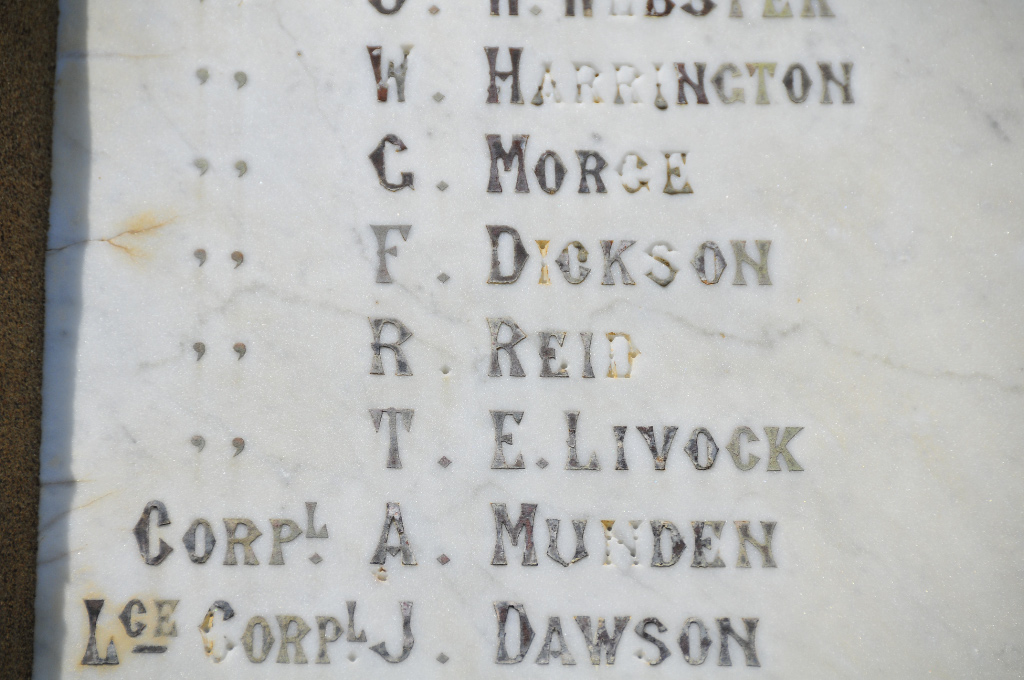 W. WEBSTER
,, W. HARRINGTON
,, G. MORGE
,, F. DICKSON
,, R. REID
,, T. E. LIVOCK
CORPL. A. MUNDEN
LGE CORPL J. DAWSON